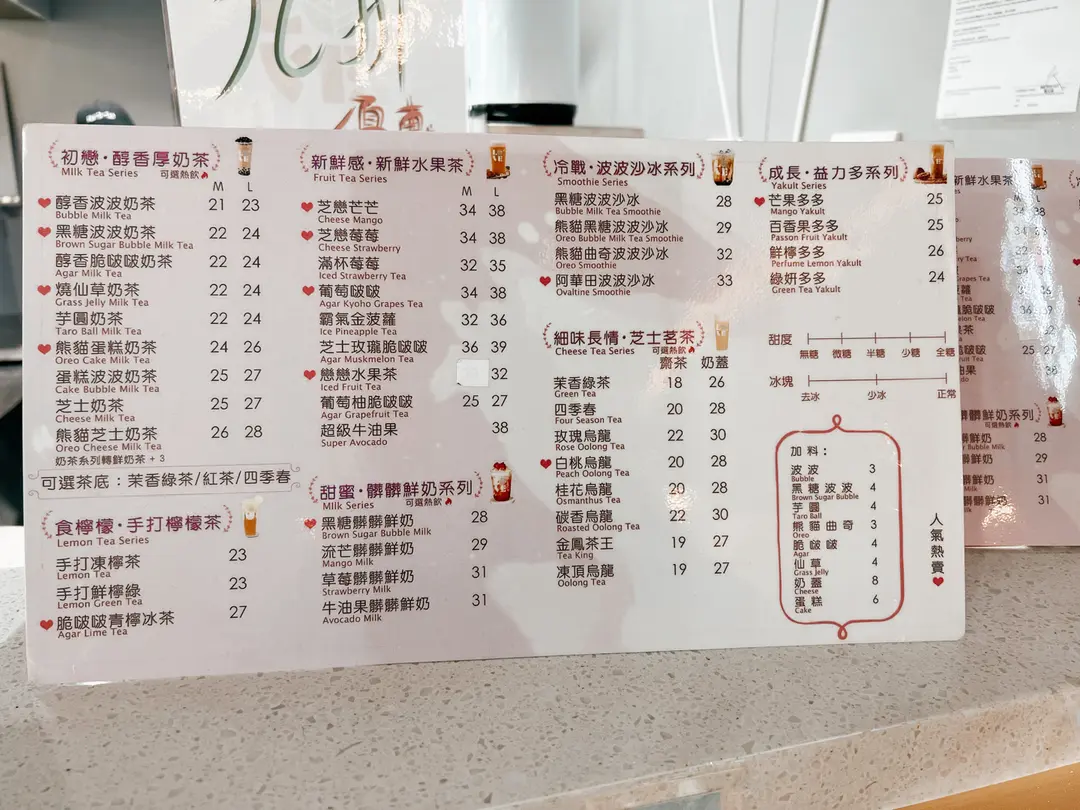 初戀·醇香厚奶茶
Milk Tea Series 可選熱飲
M L
醇香波波奶茶 21 23
Bubble Milk Tea
黑糖波波奶茶 22 24
Brown Sugar Bubble Milk Tea
醇香脆啵啵奶茶 22 24
Agar Milk Tea
燒仙草奶茶 22 24
Grass Jelly Milk Tea
芋圓奶茶 22 24
Taro Ball Milk Tea
熊貓蛋糕奶茶 24 26
Oreo Cake Milk Tea
蛋糕波波奶茶 25 27
Cake Bubble Milk Tea
芝士奶茶 25 27
Cheese Milk Tea
熊貓芝士奶茶 26 28
Oreo Cheese Milk Tea
奶茶系列轉鮮奶茶 + 3
可選茶底：茉香綠茶/紅茶/四季春
食檸檬·手打檸檬茶
Lemon Tea Series
手打凍檸茶 23
Lemon Tea
手打鮮檸綠 23
Lemon Green Tea
脆啵啵青檸冰茶 27
Agar Lime Tea
新鮮感·新鮮水果茶
Fruit Tea Series
M L
芝戀芒芒 34 38
Cheese Mango
芝戀莓莓 34 38
Cheese Strawberry
滿杯莓莓 32 35
Iced Strawberry Tea
葡萄啵啵 34 38
Agar Kyoho Grapes Tea
霸氣金菠蘿 32 36
Ice Pineapple Tea
芝士玫瓏脆啵啵 36 39
Agar Muskmelon Tea
戀戀水果茶 32
Iced Fruit Tea
葡萄柚脆啵啵 25 27
Agar Grapefruit Tea
超級牛油果 38
Super Avocado
甜蜜·髒髒鮮奶系列
可選熱飲
黑糖髒髒鮮奶 28
Brown Sugar Bubble Milk
流芒髒髒鮮奶 29
Mango Milk
草莓髒髒鮮奶 31
Strawberry Milk
牛油果髒髒鮮奶 31
Avocado Milk
冷戰·波波沙冰系列
Smoothie Series
黑糖波波沙冰 28
Bubble Milk Tea Smoothie
熊貓黑糖波波沙冰 29
Oreo Bubble Milk Tea Smoothie
熊貓曲奇波波沙冰 32
Oreo Smoothie
阿華田波波沙冰 33
Ovaltine Smoothie
細味長情·芝士茗茶
Cheese Tea Series 可選熱飲
齋茶 奶蓋
茉香綠茶 18 26
Green Tea
四季春 20 28
Four Season Tea
玫瑰烏龍 22 30
Rose Oolong Tea
白桃烏龍 20 28
Peach Oolong Tea
桂花烏龍 20 28
Osmanthus Tea
碳香烏龍 22 30
Roasted Oolong Tea
金鳳茶王 19 27
Tea King
凍頂烏龍 19 27
Oolong Tea
成長·益力多系列
Yakult Series
芒果多多 25
Mango Yakult
百香果多多 25
Passon Fruit Yakult
鮮檸多多 26
Perfume Lemon Yakult
綠妍多多 24
Green Tea Yakult
甜度
無糖 微糖 半糖 少糖 全糖
冰塊
去冰 少冰 正常
加料：
波波 3
Bubble
黑糖波波 4
Brown Sugar Bubble
芋圓 4
Taro Ball
熊貓曲奇 3
Oreo
脆啵啵 4
Agar
仙草 4
Grass Jelly
奶蓋 8
Cheese
蛋糕 6
Cake
人氣熱賣